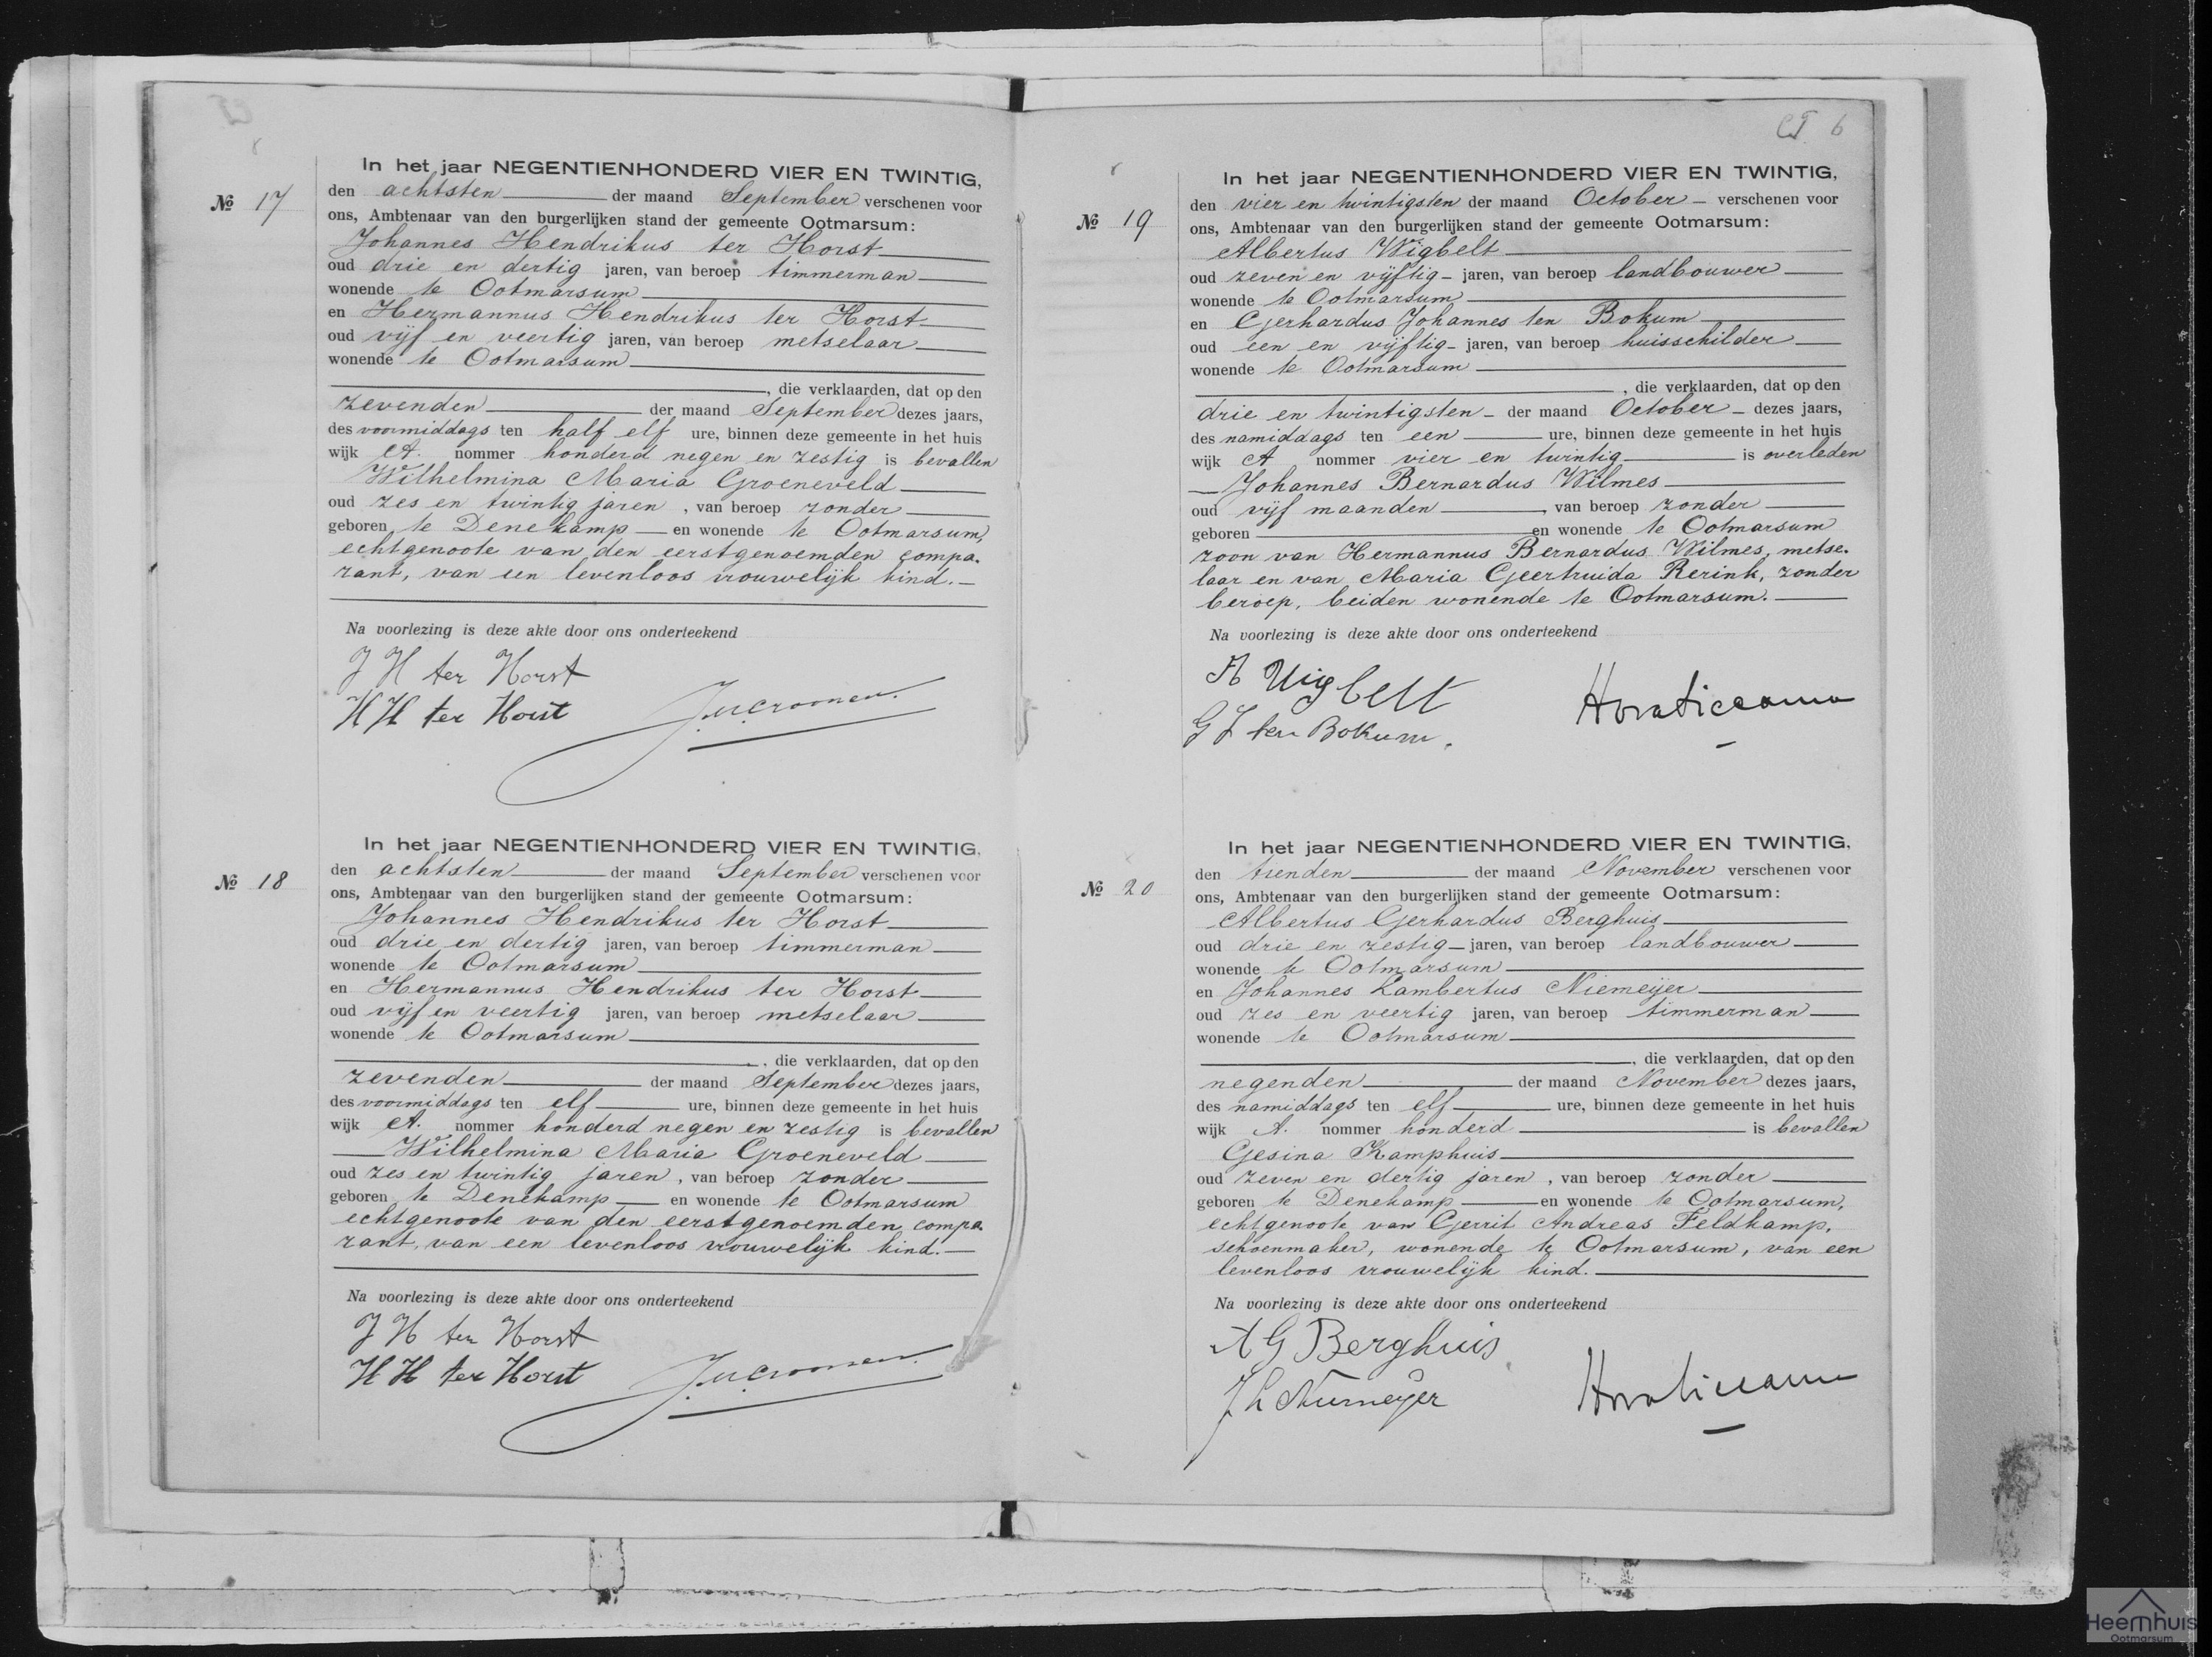 In het jaar NEGENTIENHONDERD VIER EN TWINTIG,
№ 17
den achtsten der maand September verschenen voor
ons, Ambtenaar van den burgerlijken stand der gemeente Ootmarsum:
Johannes Hendrikus ter Horst
oud drie en dertig jaren, van beroep timmerman
wonende te Ootmarsum
en Hermannus Hendrikus ter Horst
oud vijf en veertig jaren, van beroep metselaar
wonende te Ootmarsum
, die verklaarden, dat op den
zevenden der maand September dezes jaars,
des voormiddags ten half elf ure, binnen deze gemeente in het huis
wijk A. nommer honderd negen en zestig is bevallen
Wilhelmina Maria Groeneveld
oud zes en twintig jaren, van beroep zonder
geboren te Denekamp en wonende te Ootmarsum,
echtgenoote van den eerstgenoemden compa-
rant, van een levenloos vrouwelijk kind.
Na voorlezing is deze akte door ons onderteekend
J H ter Horst
H H ter Horst
In het jaar NEGENTIENHONDERD VIER EN TWINTIG.
№ 18
den achtsten der maand September verschenen voor
ons, Ambtenaar van den burgerlijken stand der gemeente Ootmarsum:
Johannes Hendrikus ter Horst
oud drie en dertig jaren, van beroep timmerman
wonende te Ootmarsum
en Hermannus Hendrikus ter Horst
oud vijf en veertig jaren, van beroep metselaar
wonende te Ootmarsum
, die verklaarden, dat op den
zevenden der maand September dezes jaars,
des voormiddags ten elf ure, binnen deze gemeente in het huis
wijk A. nommer honderd negen en zestig is bevallen
Wilhelmina Maria Groeneveld
oud zes en twintig jaren, van beroep zonder
geboren te Denekamp en wonende te Ootmarsum
echtgenoote van den eerstgenoemden compa-
rant, van een levenloos vrouwelijk kind.
Na voorlezing is deze akte door ons onderteekend
J H ter Horst
H H ter Horst
6
In het jaar NEGENTIENHONDERD VIER EN TWINTIG,
№ 19
den vier en twintigsten der maand October verschenen voor
ons, Ambtenaar van den burgerlijken stand der gemeente Ootmarsum:
Albertus Wigbelt
oud zeven en vijftig jaren, van beroep landbouwer
wonende te Ootmarsum
en Gerhardus Johannes ten Bokum
oud een en vijftig jaren, van beroep huisschilder
wonende te Ootmarsum
, die verklaarden, dat op den
drie en twintigsten der maand October dezes jaars,
des namiddags ten een ure, binnen deze gemeente in het huis
wijk A nommer vier en twintig is overleden
Johannes Bernardus Wilmes
oud vijf maanden, van beroep zonder
geboren en wonende te Ootmarsum
zoon van Hermannus Bernardus Wilmes, metse-
laar en van Maria Geertruida Rerink, zonder
beroep, beiden wonende te Ootmarsum.
Na voorlezing is deze akte door ons onderteekend
A Wigbelt
G J ten Bokum.
In het jaar NEGENTIENHONDERD VIER EN TWINTIG.
№ 20
den tienden der maand November verschenen voor
ons, Ambtenaar van den burgerlijken stand der gemeente Ootmarsum:
Albertus Gerhardus Berghuis
oud drie en zestig jaren, van beroep landbouwer
wonende te Ootmarsum
en Johannes Lambertus Niemeijer
oud zes en veertig jaren, van beroep timmerman
wonende te Ootmarsum
, die verklaarden, dat op den
negenden der maand November dezes jaars,
des namiddags ten elf ure, binnen deze gemeente in het huis
wijk A. nommer honderd is bevallen
Gesina Kamphuis
oud zeven en dertig jaren, van beroep zonder
geboren te Denekamp en wonende te Ootmarsum,
echtgenoote van Gerrit Andreas Feldkamp,
schoenmaker, wonende te Ootmarsum, van een
levenloos vrouwelijk kind.
Na voorlezing is deze akte door ons onderteekend
A G Berghuis
J L Niemeijer
Heemhuis
Ootmarsum